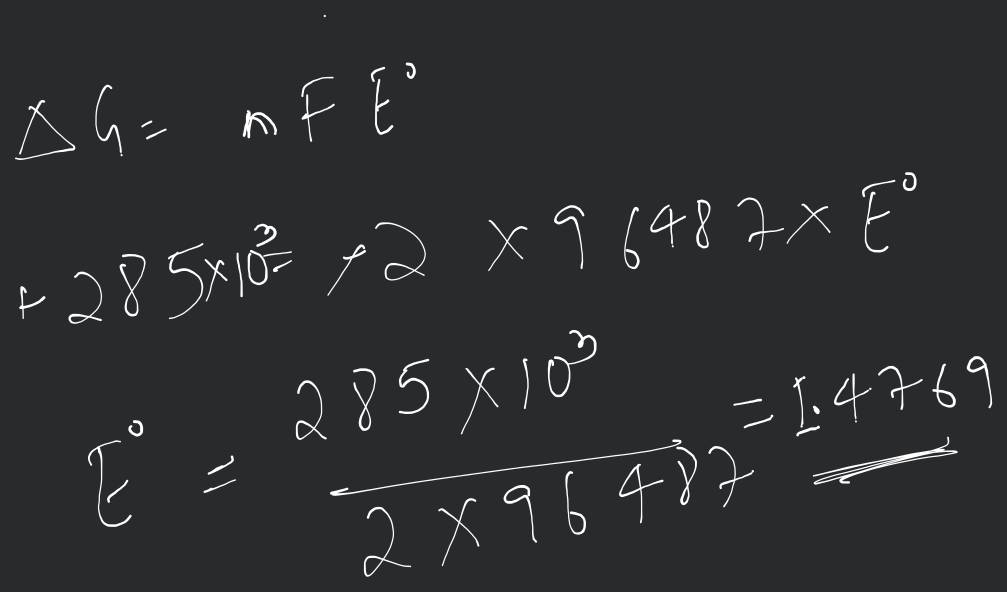 ΔG = nFE°
+285×10³ = +2 × 96487 × E°
E° = 285×10³ / 2×96487 = 1.4769